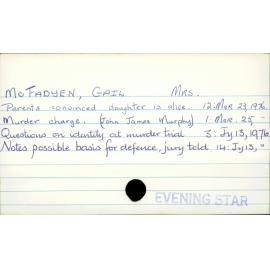 McFADYEN, GAIL MRS.
Parents convinced daughter is alive. 12: Mar 23, 1976.
Murder charge. (John James Murphy) 1: Mar. 25 "
Questions on identity at murder trial 3: Jy 13, 1976
Notes possible basis for defence, jury told 14: Jy 13, "
EVENING STAR